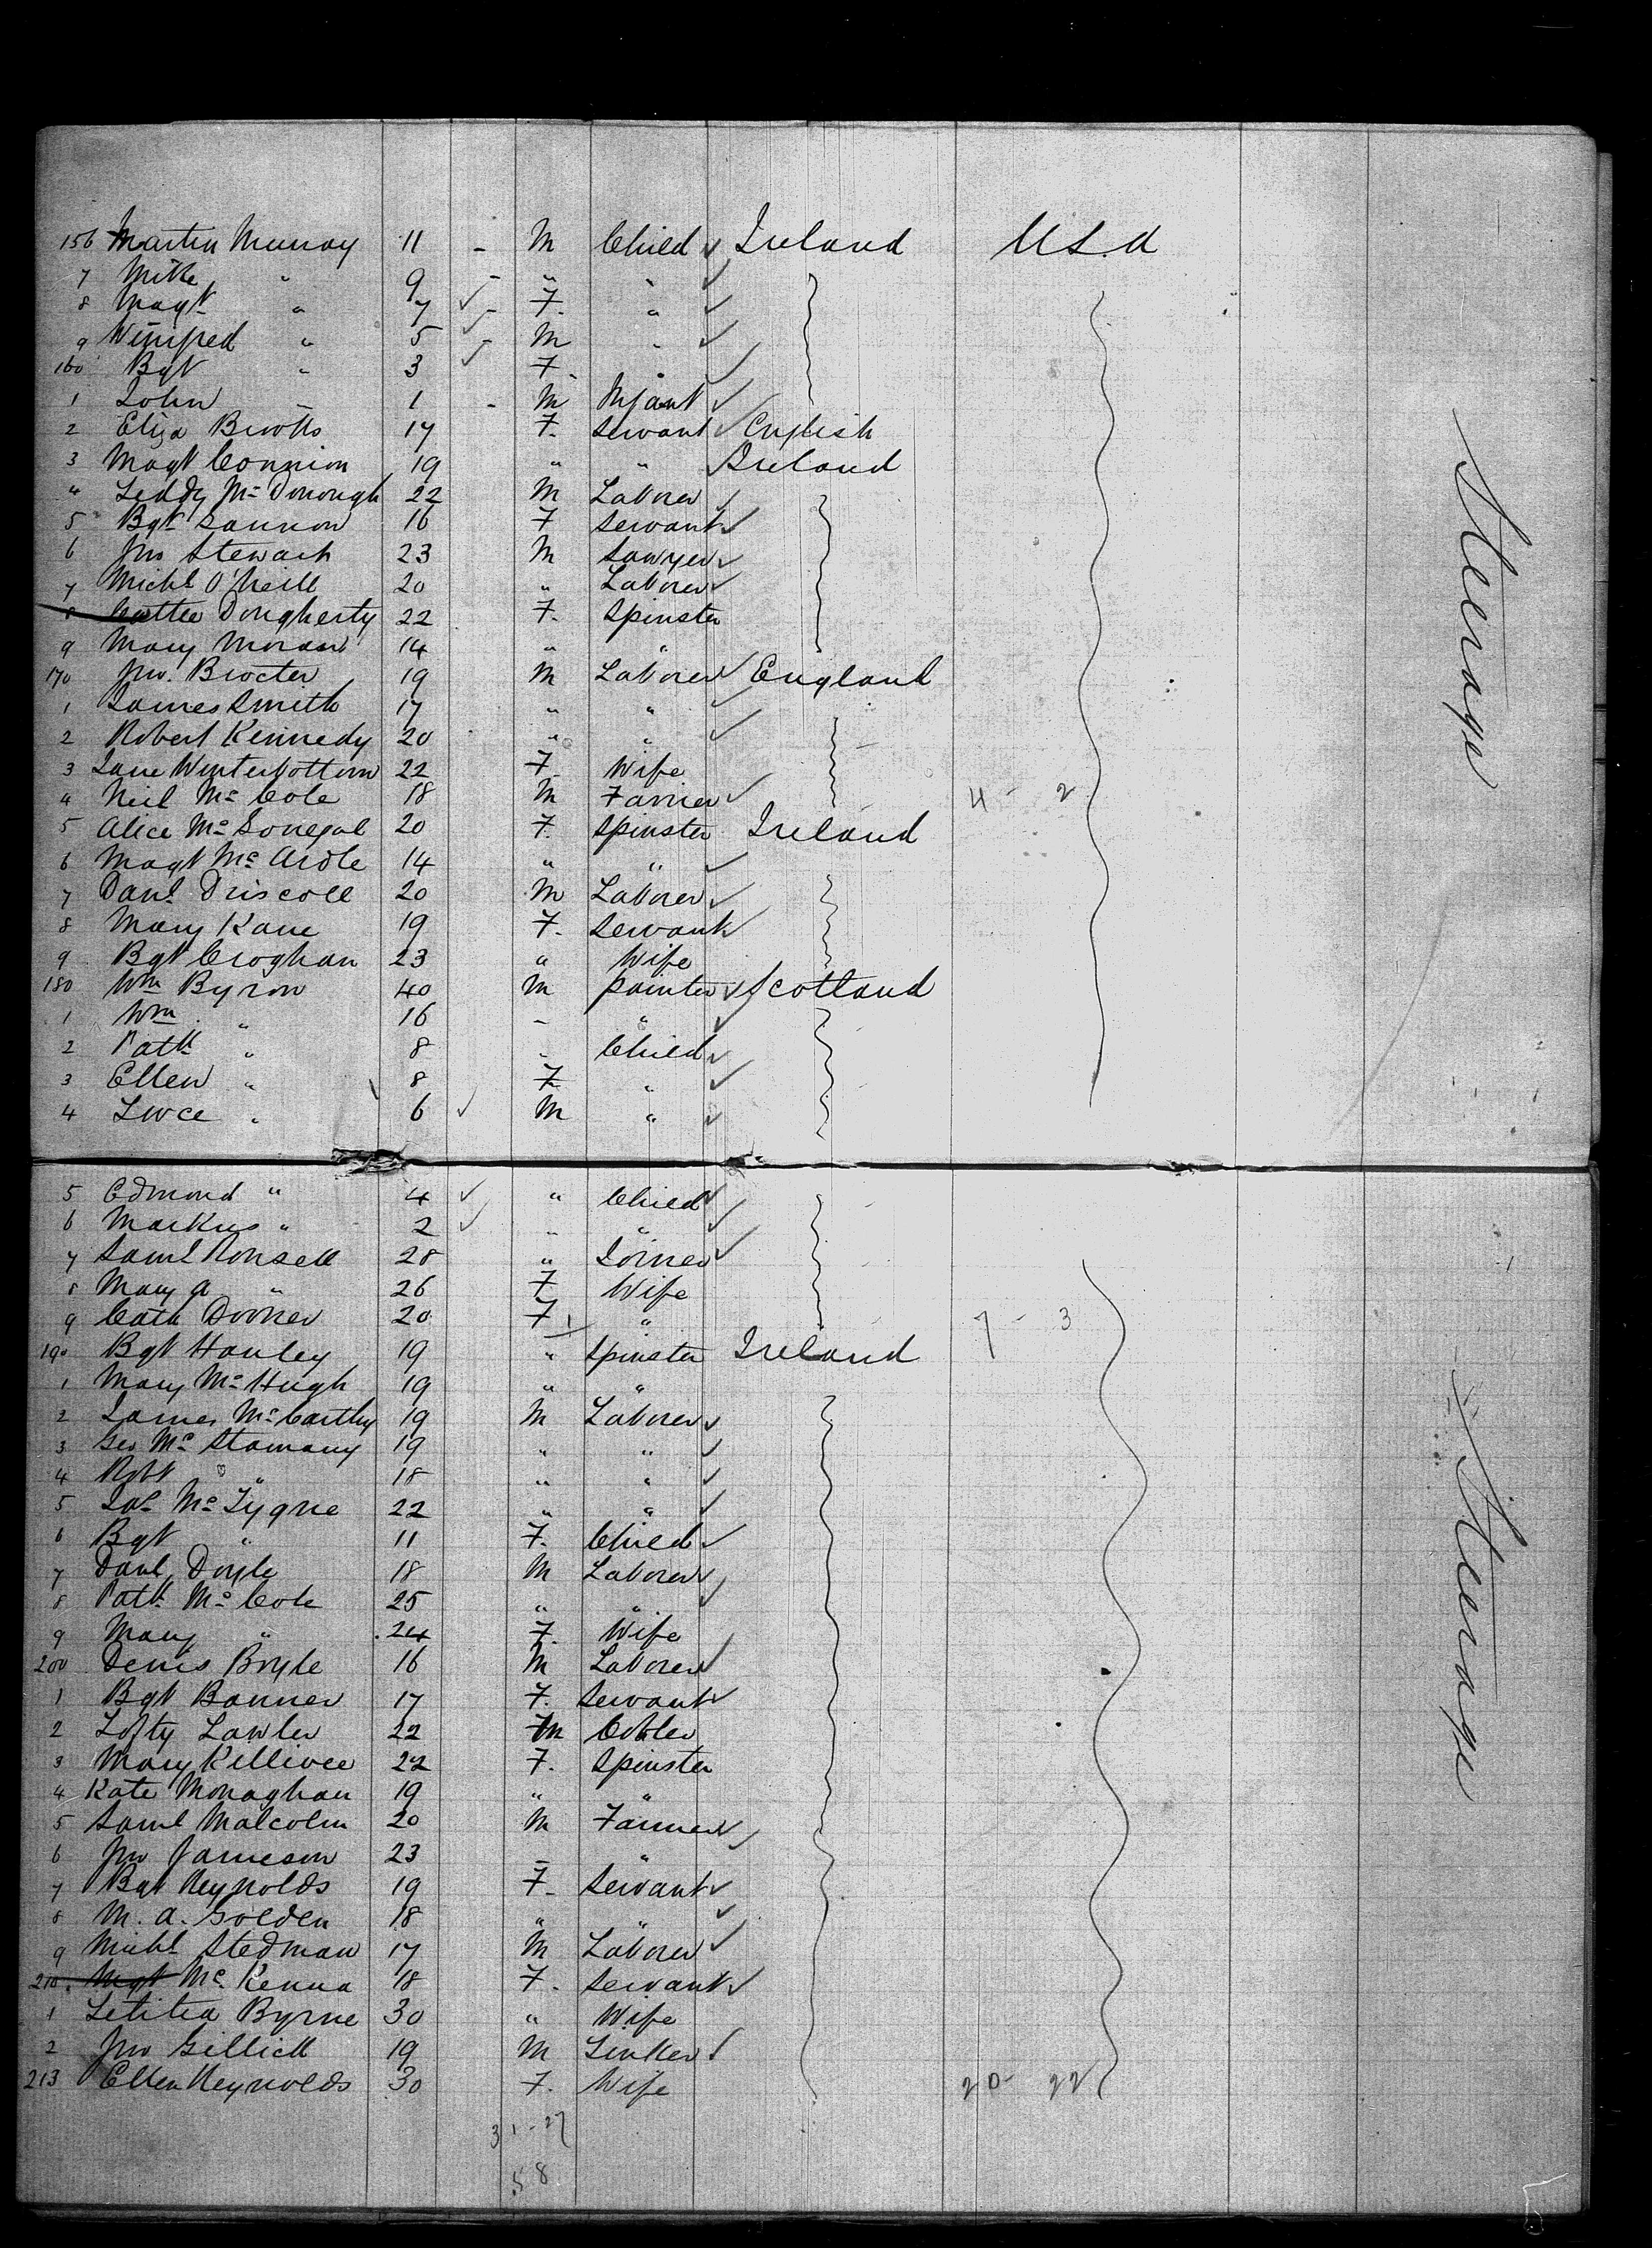 156 Martin Murray 11 - M Child Ireland U.S.A
7 Mike " 9 - " "
8 Magt " 7 - F. "
9 Winifred " 5 - M "
160 Bgt " 3 F "
1 John " 1 - M Infant
2 Eliza Brooks 17 F. Servant English
3 Magt Connion 19 " " Ireland
4 Teddy Mc Donough 22 M Laborer
5 Bgt Gannon 16 F Servant
6 Jno Stewart 23 M Sawyer
7 Michl O'Neill 20 " Laborer
8 Dougherty 22 F. Spinster
9 Mary Moran 14 " "
170 Jno. Brocter 19 M Laborer England
1 James Smith 17 " "
2 Robert Kennedy 20 " "
3 Jane Winterbottom 22 F Wife
4 Neil Mc Cole 18 M Farrier 4 - 2
5 Alice Mc Gonegal 20 F. Spinster Ireland
6 Magt Mc Ardle 14 " "
7 Danl Driscoll 20 M Laborer
8 Mary Kane 19 F. Servant
9 Bgt Croghan 23 " Wife
180 Wm Byron 40 M painter Scotland
1 Wm " 16 - "
2 Patk " 8 " Child
3 Ellen " 8 F "
4 " 6 M "
Steerage
5 Edmond " 4 " Child
6 Markus " 2 " "
7 Saml Ronsell 28 " Joiner
8 Mary A " 26 F Wife
9 Cath 20 F " 7 - 3
190 Bgt Hanley 19 " Spinster Ireland
1 Mary Mc Hugh 19 " "
2 James Mc Carthy 19 M Laborer
3 Geo Mc Stamany 19 " "
4 Robt " 18 " "
5 Jas Mc Tygne 22 " "
6 Bgt " 11 F. Child
7 Danl Doyle 18 M Laborer
8 Patk Mc Cole 25 " "
9 Mary " 24 F. Wife
200 Denis Boyle 16 M Laborer
1 Bgt Banner 17 F. Servant
2 Lofty Lawler 22 M Cobler
3 Mary Killivee 22 F. Spinster
4 Kate Monaghan 19 " "
5 Saml Malcolm 20 M Farmer
6 Jno Jameson 23 - "
7 Bgt Reynolds 19 F - Servant
8 M. A. Golden 18 " "
9 Michl Stedman 17 M Laborer
210 Mgt Mc Kenna 18 F. Servant
1 Letitia Byrne 30 " Wife
2 Jno Gillick 19 M
213 Ellen Reynolds 30 F. Wife 20 - 22
31-27
58
Steerage